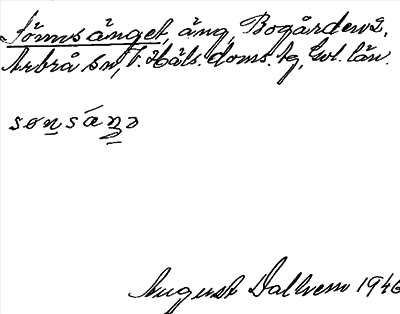 Sömsänget, äng, Bogården 2,
Arbrå sn, V. Häls. doms. tg, Gvl. län.
sønsáŋə
August Dallvem 1946